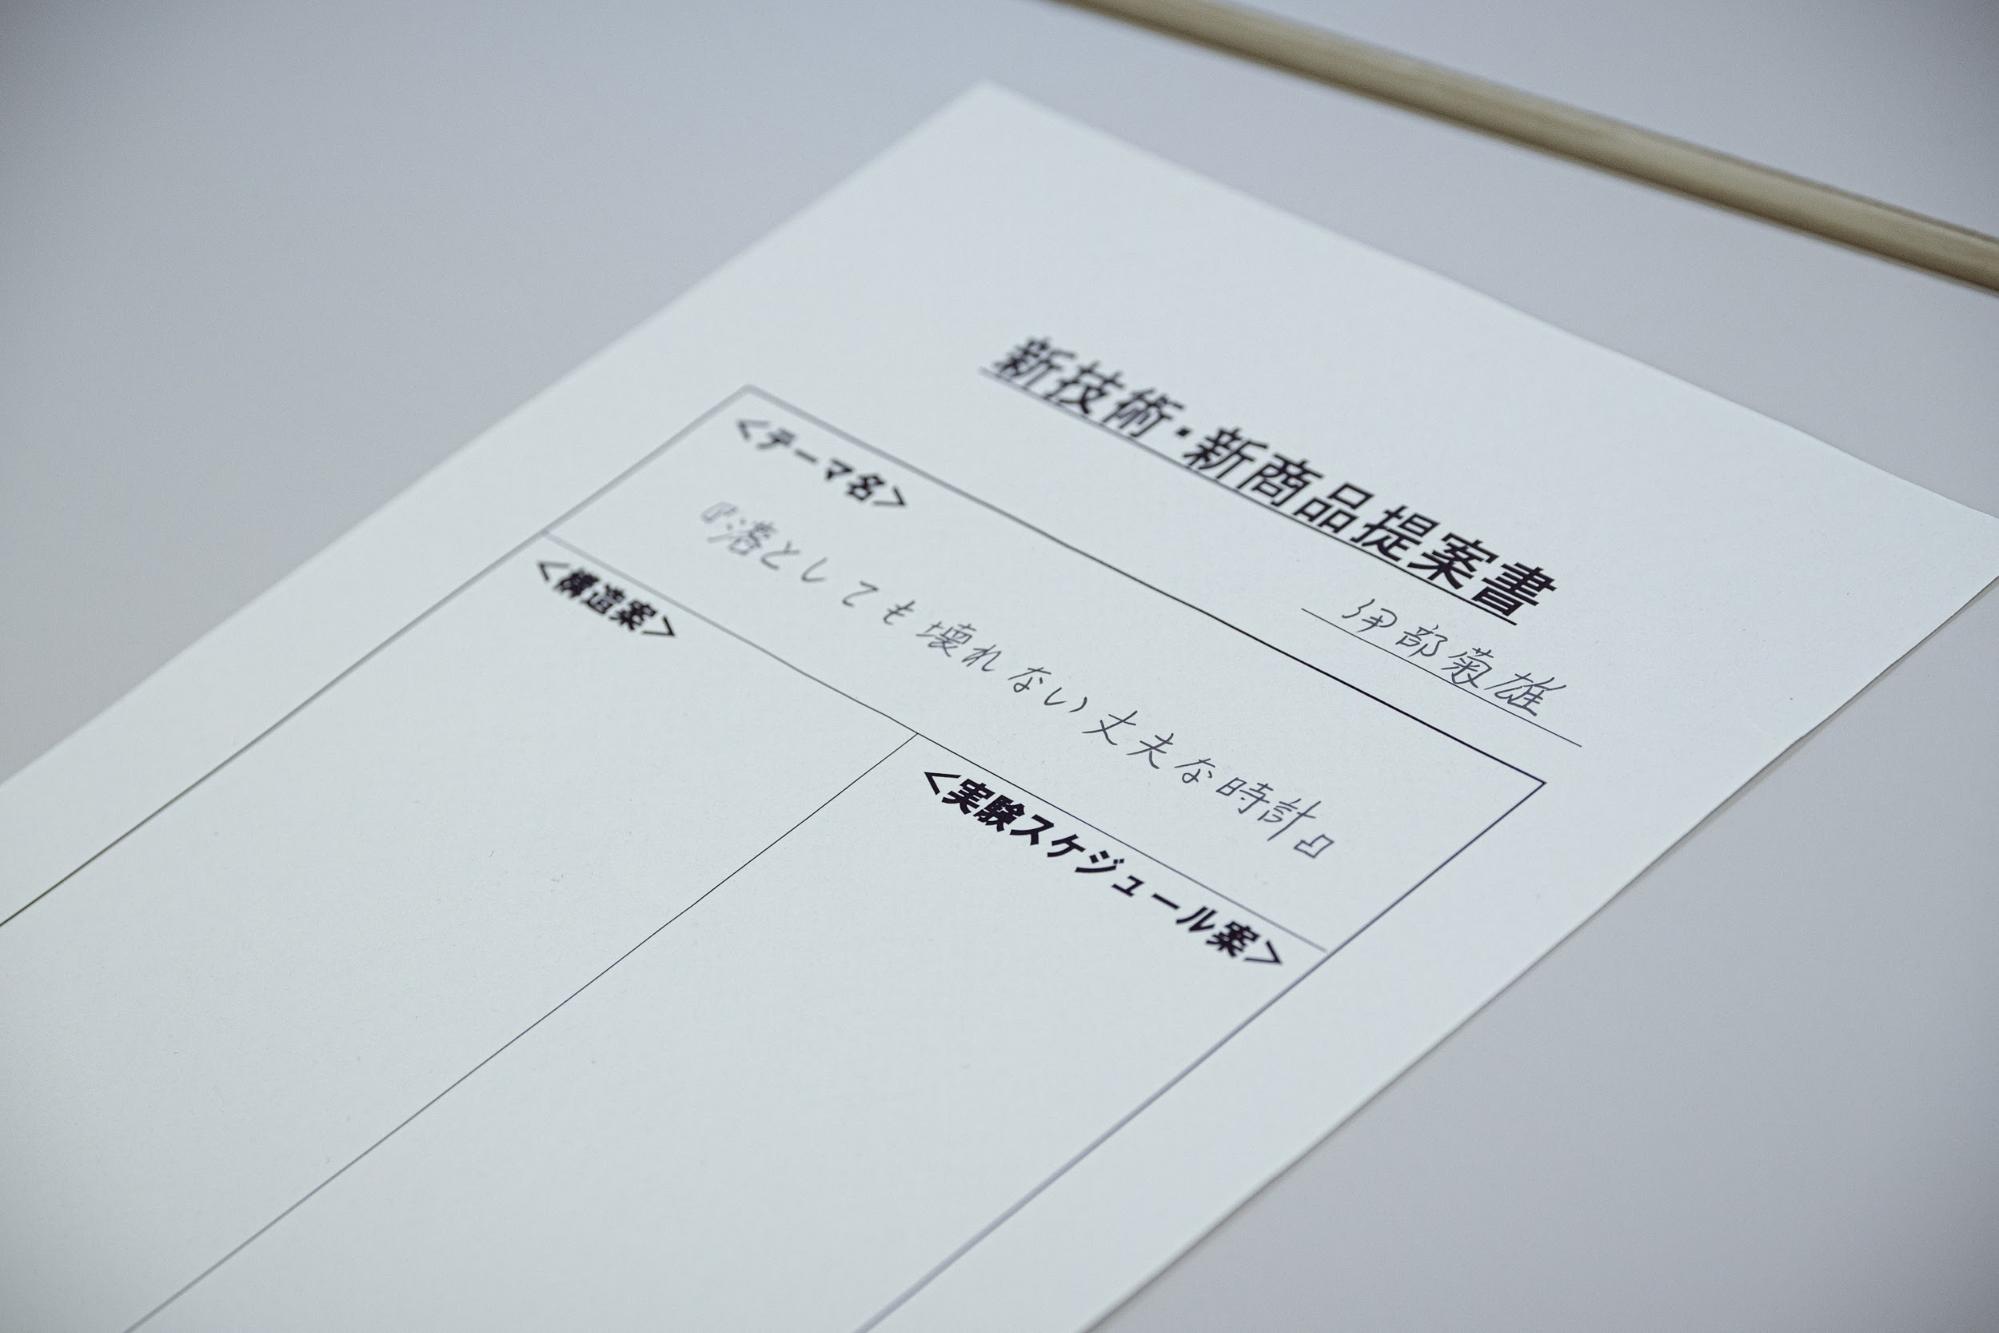 新技術・新商品提案書
伊部菊雄
<テーマ名>
『落としても壊れない丈夫な時計』
<構造案>
<実験スケジュール案>